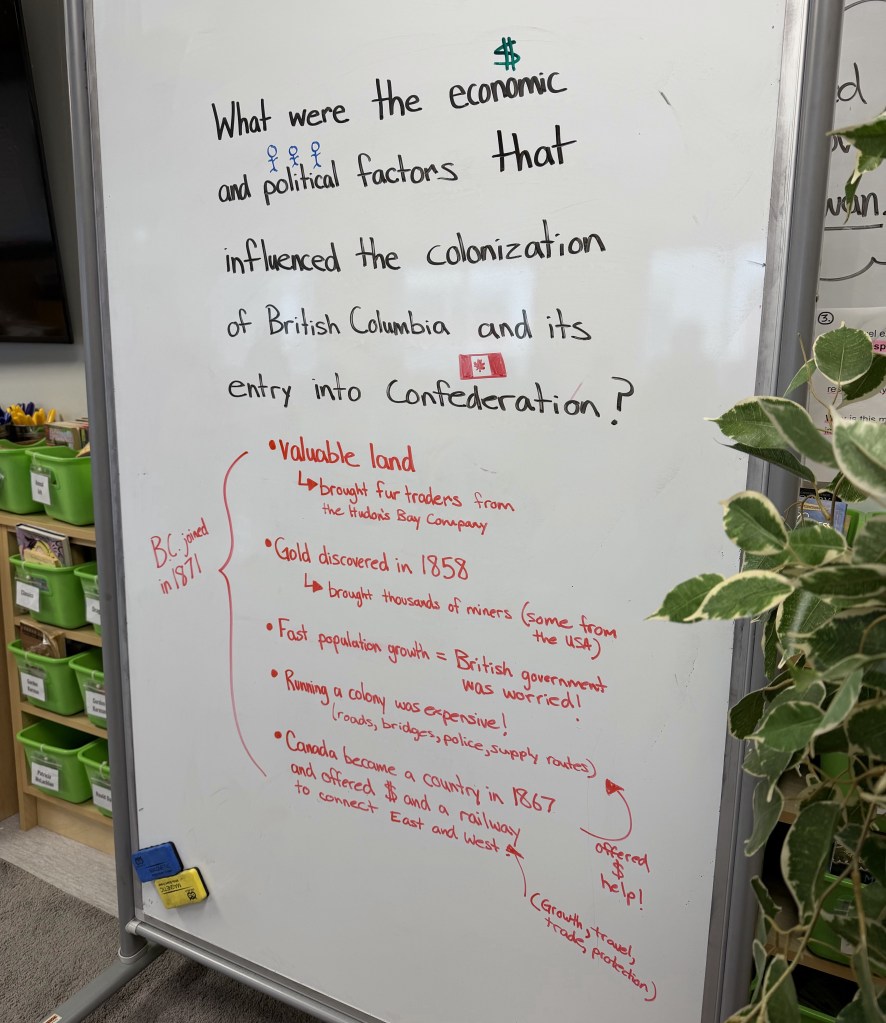 $
What were the economic
and political factors that
influenced the colonization
of British Columbia and its
entry into Confederation?
B.C. joined
in 1871
• Valuable land
↳ brought fur traders from
the Hudon's Bay Company
• Gold discovered in 1858
↳ brought thousands of miners (some from
the USA)
• Fast population growth = British government
was worried!
• Running a colony was expensive!
(roads, bridges, police, supply routes)
• Canada became a country in 1867
and offered $ and a railway
to connect East and West.
offered
$
help!
(Growth, travel,
trade, protection)
3.